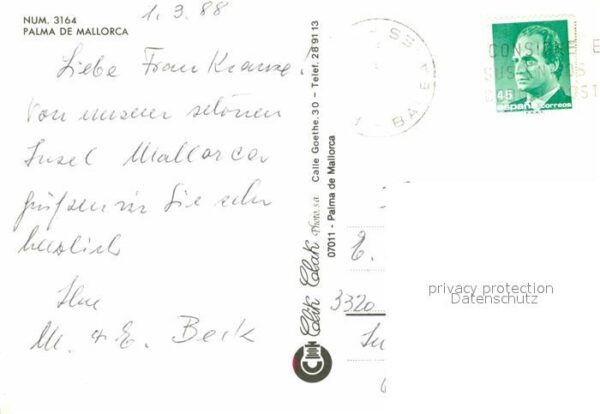 NUM. 3164
PALMA DE MALLORCA
1.3.88
Liebe Frau Krause!
Von unserer schönen
Insel Mallorca
grüßen wir Sie sehr
herzlich
Ihre
M. + E. Beck
Clik Clak Photo, s.a. Calle Goethe, 30 - Telef. 28 91 13
07011 - Palma de Mallorca
BA
CONSIGNE E
SUS
45
españa correos
E.
3320
privacy protection
Datenschutz